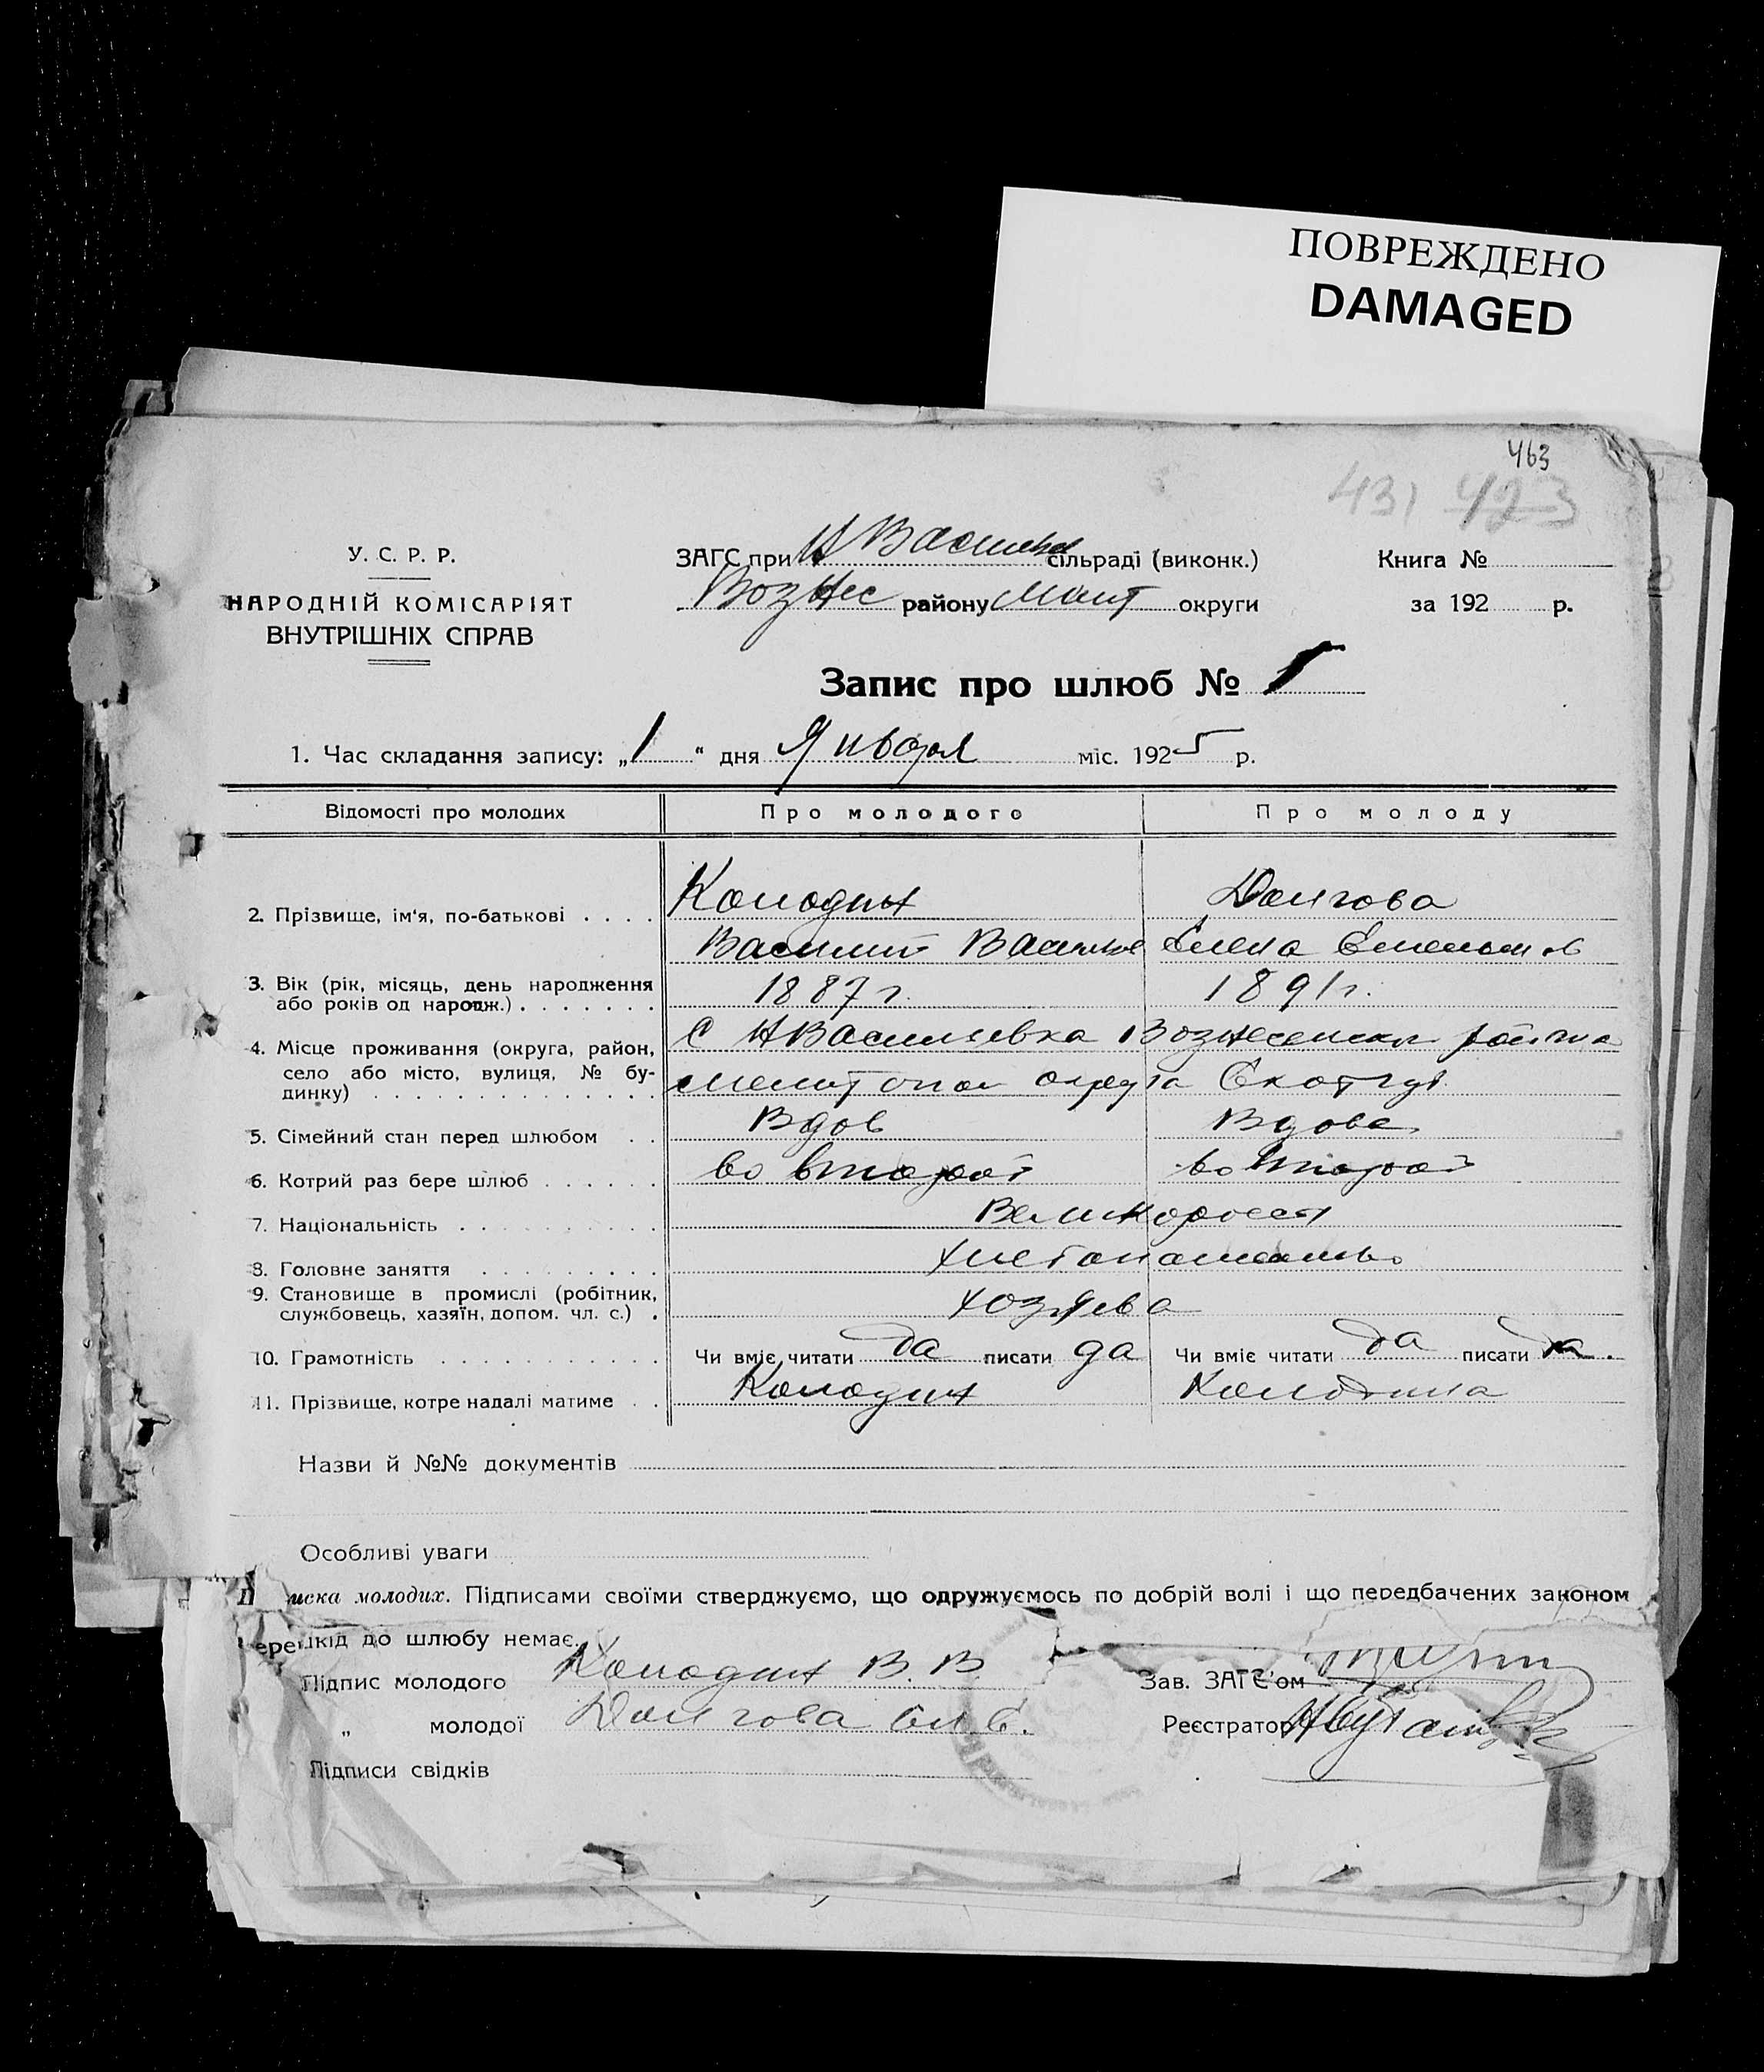 ПОВРЕЖДЕНО
DAMAGED
463
431 423
У. С. Р. Р.
НАРОДНІЙ КОМІСАРІЯТ
ВНУТРІШНІХ СПРАВ
ЗАГС при Н Васильев сільраді (виконк.)
Вознес району Мелит округи
Книга №
за 192 р.
Запис про шлюб № 1
1. Час складання запису: „1“ дня Января міс. 1925 р.
Відомості про молодих Про молодого Про молоду
2. Прізвище, ім'я, по-батькові . . . . Колодин Долгова
Василий Василье Елена Емельянов
3. Вік (рік, місяць, день народження
або років од народж.) . . . . . . . 1887 г. 1891 г.
4. Місце проживання (округа, район,
село або місто, вулиця, № бу-
динку) . . . . . . . . . . . . . .
С Н Васильевка Вознесенск района
Мелитопол округа Екат губ.
5. Сімейний стан перед шлюбом . . Вдов Вдова
6. Котрий раз бере шлюб . . . . . . во второй во второй
7. Національність . . . . . . . . . Великоросы
8. Головне заняття . . . . . . . . . хлебопашество
9. Становище в промислі (робітник,
службовець, хазяїн, допом. чл. с.) . хозяева
10. Грамотність . . . . . . . . . . . Чи вміє читати да писати да Чи вміє читати да писати да.
11. Прізвище, котре надалі матиме . . Колодин Колодина
Назви й №№ документів
Особливі уваги
П иска молодих. Підписами своїми стверджуємо, що одружуємось по добрій волі і що передбачених законом
ерешкід до шлюбу немає.
Підпис молодого Колодин В. В
Зав. ЗАГС'ом
„ молодої Долгова Ел. Е.
Реєстратор
Підписи свідків